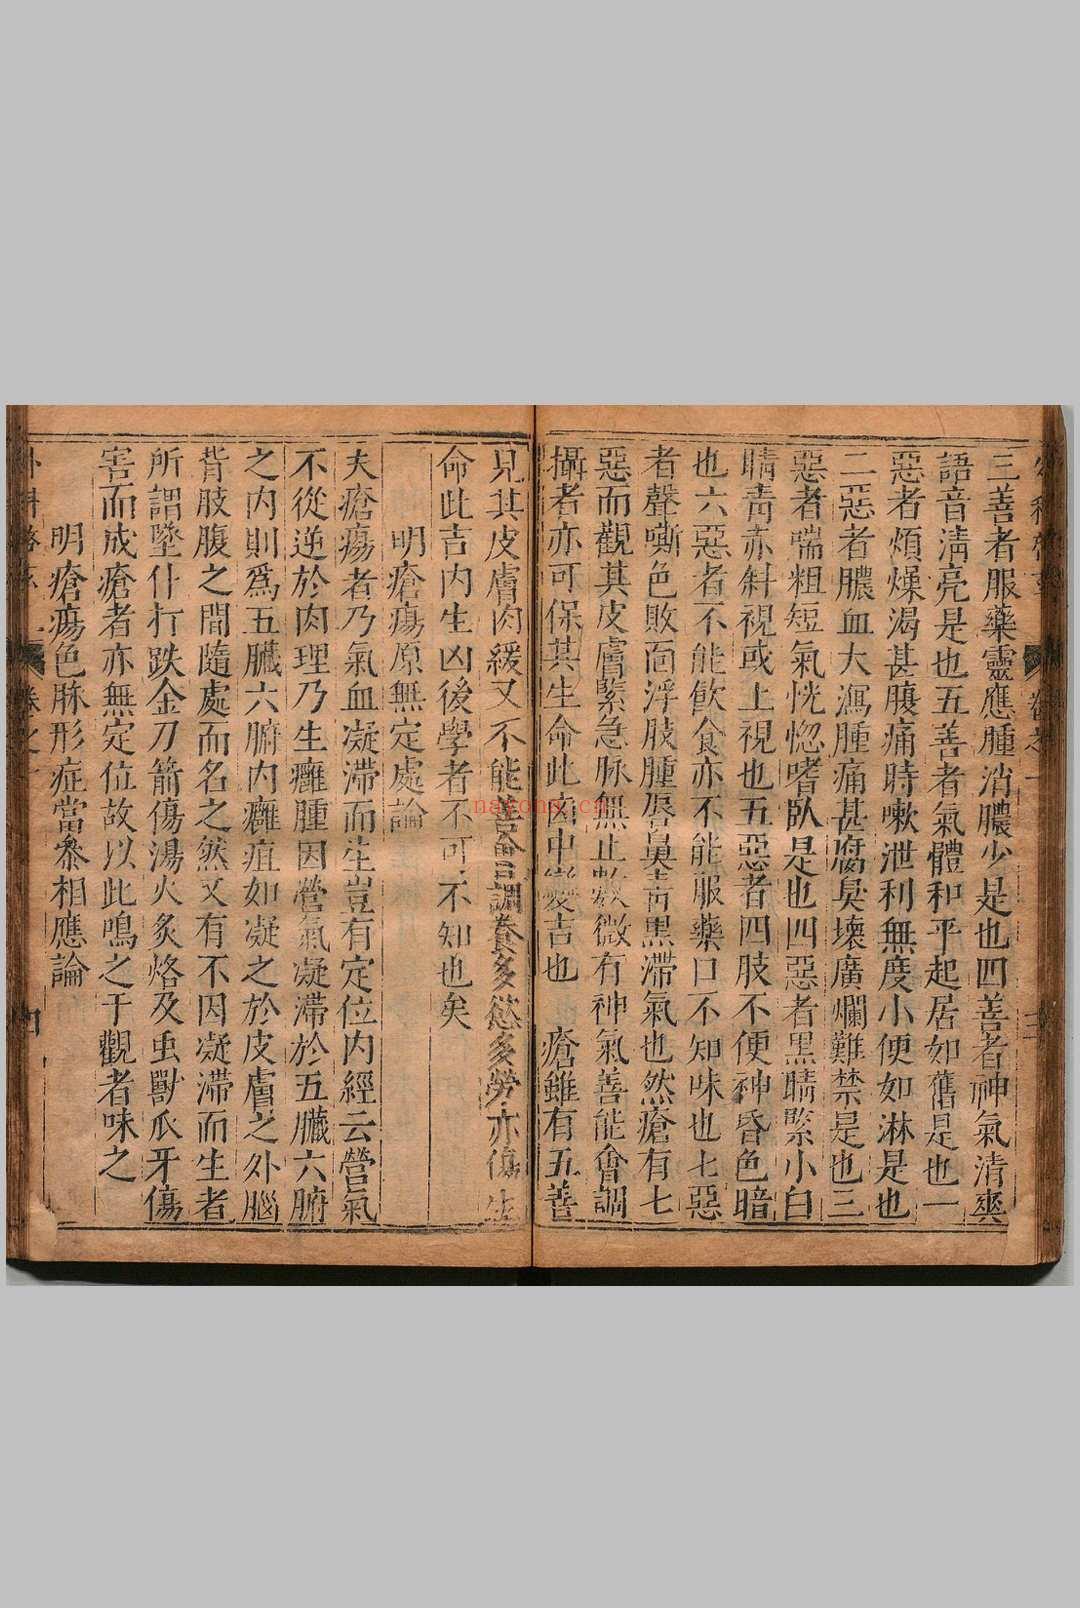 三善者服藥靈應腫消膿少是也四善者神氣清爽
語音清亮是也五善者氣體和平起居如舊是也一
惡者煩燥渴甚腹痛時嗽泄利無度小便如淋是也
二惡者膿血大瀉腫痛甚腐臭壞廣爛難禁是也三
惡者喘粗短氣恍惚嗜臥是也四惡者黑睛緊小白
睛青赤斜視或上視也五惡者四肢不便神昏色暗
也六惡者不能飲食亦不能服藥口不知味也七惡
者聲嘶色敗面浮肢腫唇鼻青黑滯氣也然瘡有七
惡而觀其皮膚緊急脉無止數微有神氣善能會調
攝者亦可保其生命此凶中變吉也 瘡雖有五善
見其皮膚肉緩又不能善會調養多慾多勞亦傷生
命此吉內生凶後學者不可不知也矣
明瘡瘍原無定處論
夫瘡瘍者乃氣血凝滯而生豈有定位內經云營氣
不從逆於肉理乃生癰腫因營氣凝滯於五臟六腑
之內則爲五臟六腑內癰疽如凝之於皮膚之外腦
背肢腹之間隨處而名之然又有不因凝滯而生者
所謂墜仆打跌金刀箭傷湯火炙烙及虫獸爪牙傷
害而成瘡者亦無定位故以此鳴之于觀者味之
明瘡瘍色脉形症當參相應論
卷之一
四
nayona.cn